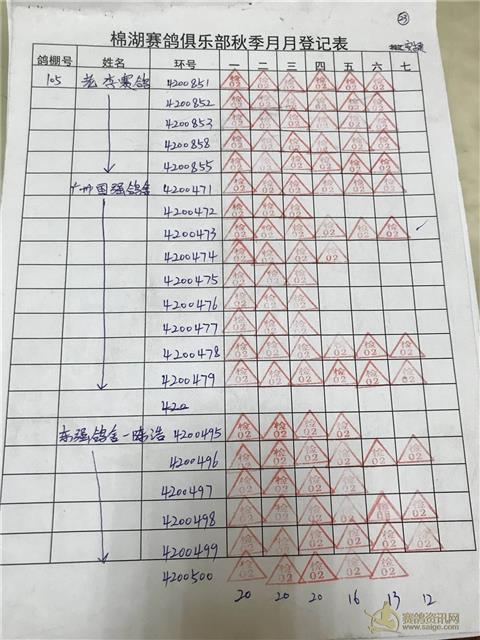 23
棉湖赛鸽俱乐部秋季月月登记表
鸽棚号 姓名 环号 一 二 三 四 五 六 七
105 赛鸽 4200851 检02 检02 检02 检02 检02 检02
4200852 检02 检02 检02 检02 检02 检02
4200853 检02 检02 检02 检02 检02 检02
4200858 检02 检02 检02 检02 检02 检02
4200855 检02 检02 检02 检02 检02 检02
广州国强鸽舍 4200471 检02 检02 检02 检02 检02 检02
4200472 检02 检02 检02
4200473 检02 检02 检02 检02 检02 检02 检02 ✓
4200474 检02 检02 检02 检02
4200475 检02 检02 检02
4200476 检02 检02 检02
4200477 检02 检02 检02
4200478 检02 检02 检02 检02 检02 检02 检02
4200479 检02 检02 检02 检02 检02 检02 检02
420
东强鸽舍-陈浩 4200495 检02 检02 检02 检02
4200496 检02 检02 检02 检02 检02 检02 检02
4200497 检02 检02 检02 检02
4200498 检02 检02 检02 检02 检02 检02 检02
4200499 检02 检02 检02 检02 检02 检02 检02
4200500 检02 检02 检02 检02 检02
20 20 20 16 13 12
赛鸽资讯网
www.saige.com